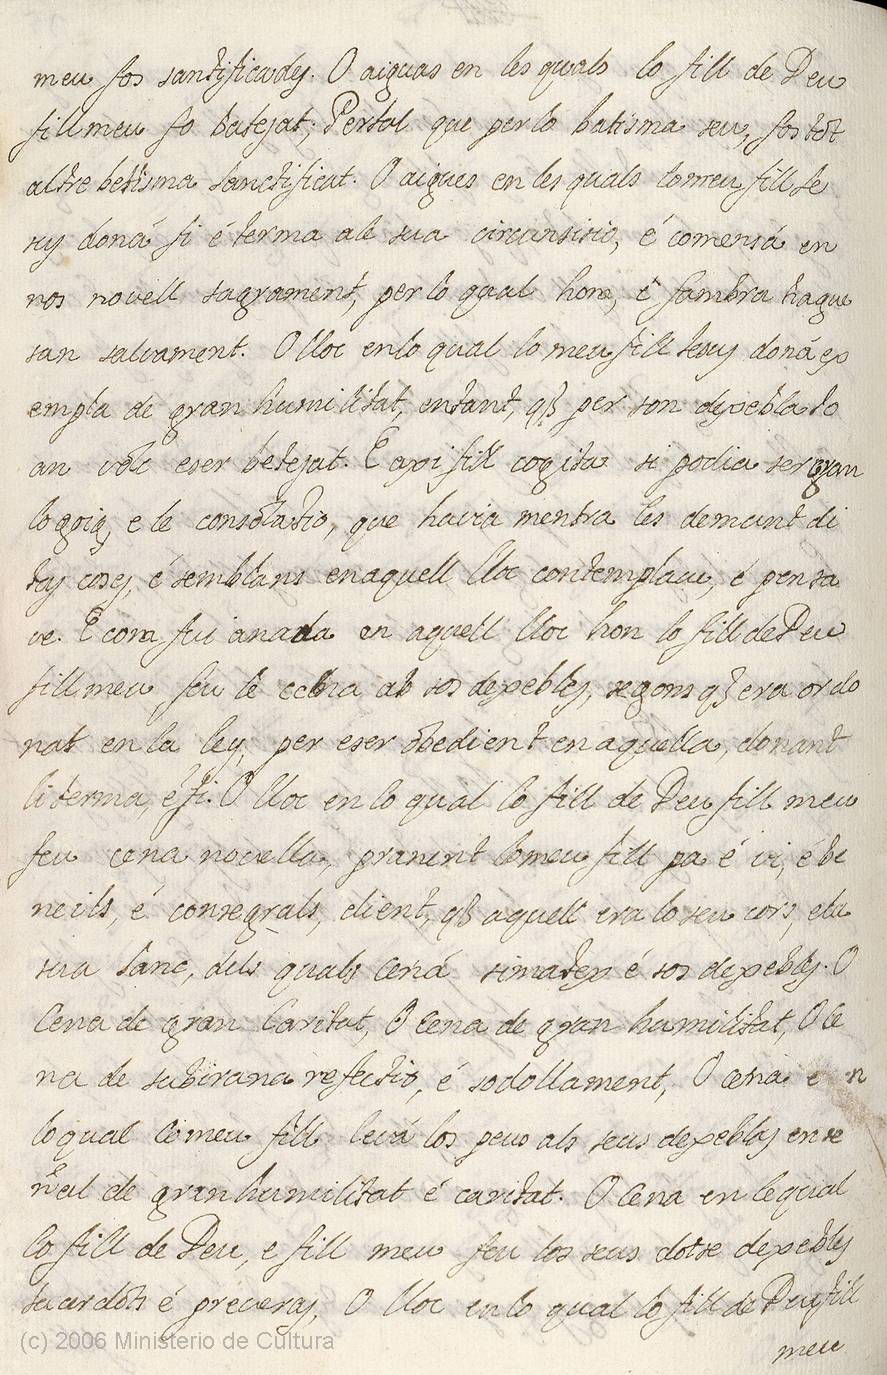 meu fos santificades. O aiguas en les quals lo fill de Deu
fill meu fo batejat; Pertal que per lo batisma seu, fos tót
altre betisma sanctificat. O aigues en les quals lo meu fill Je
sus doná fi é terma ale sua circunsisio, é comensá en
nos novell sagrament, per lo qual hom, é fambra hague
san salvament. O lloc en lo qual lo meu fill Jesus doná ex
empla de gran humilitat, entant, q̃ per son dexebla Jo
an vólc eser betejat. E axi fill cogita si podia ser gran
lo goig, e le consolatio, que havia mentra les demunt di
tas coses, é semblans en aquell lloc contemplava, é pensa
ve. E com fui anada en aquell lloc hon lo fill de Deu
fill meu feu le cena ab sos dexebles, segons q̃ era ordo
nat en la ley, per eser óbedient en aquella, donant
li terma, é fi. O lloc en lo qual lo fill de Deu fill meu
feu cena novella, pranint lo meu fill pa é vi, é be
neils, é consegrals, dient, q̃ aquell era lo seu córs, ela
sua Sanc, dels quals Cená simatex é sos dexebles. O
Cena de gran Caritat, O Cena de gran humilitat, O Ce
na de subirana refectio, é sodollament, O cena en
lo qual lo meu fill levá los peus als seus dexebles en se
ñal de gran humilitat é caritat. O Cena en le qual
lo fill de Deu, e fill meu feu los seus dotse dexebles
sacerdóts é preveras, O lloc en lo qual lo fill de Deu fill
meu
(c) 2006 Ministerio de Cultura